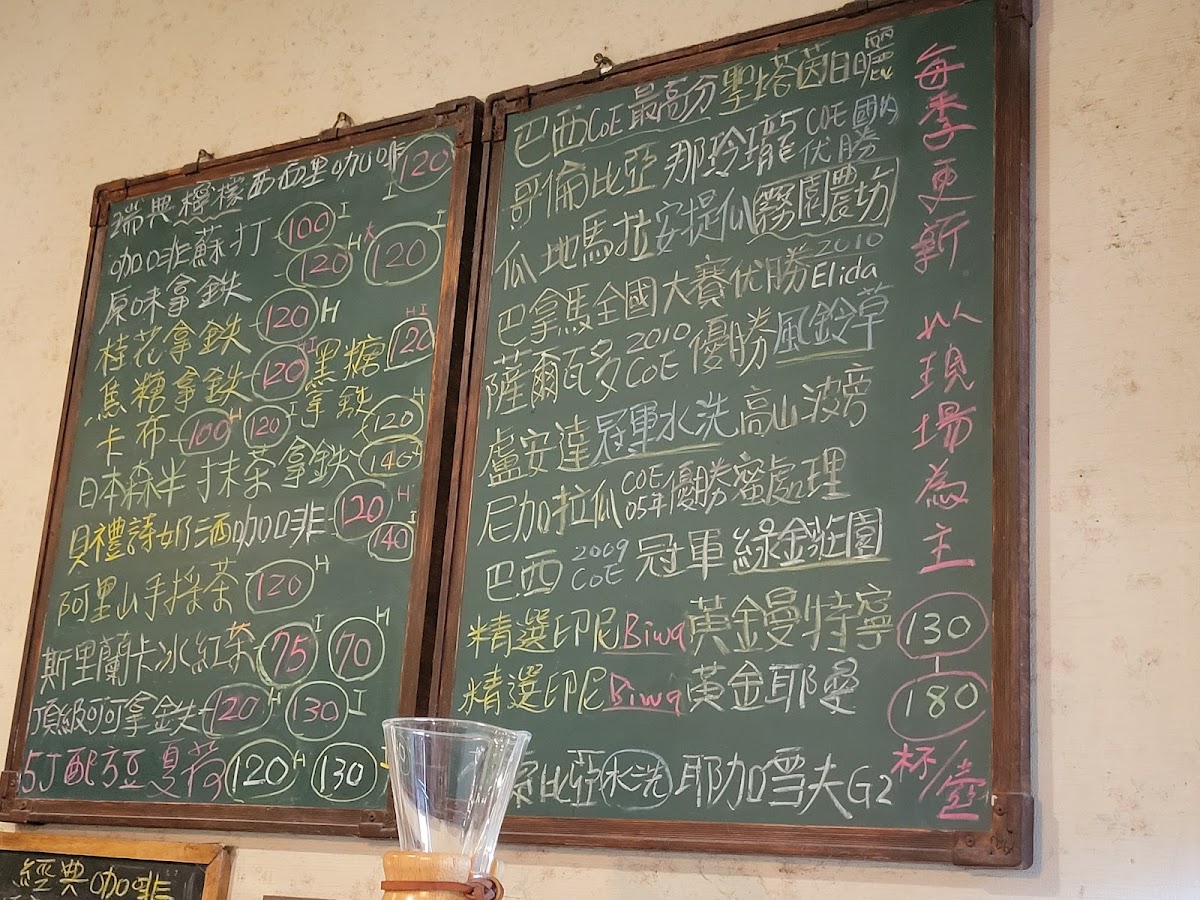 瑞典檸檬西西里咖啡 120 I
咖啡蘇打 100 I
原味拿鐵 120 H 120 I
桂花拿鐵 120 H
焦糖拿鐵 120 HI 黑糖拿鐵 120 HI
卡布 100 H 120 I 120 H
日本森半抹茶拿鐵 140 I
貝禮詩奶酒咖啡 120 H 140 I
阿里山手採茶 120 H
斯里蘭卡冰紅茶 75 I 70 H
頂級可可拿鐵 120 H 130 I
120 H 130
巴西 CoE 最高分聖塔茵日曬
哥倫比亞那玲瓏 COE 國內优勝
瓜地馬拉安提瓜霧園農坊
巴拿馬全國大賽优勝 2010 Elida
薩爾瓦多 2010 CoE 優勝風鈴草
盧安達冠軍水洗高山波旁
尼加拉瓜 COE 05年優勝蜜處理
巴西 2009 COE 冠軍綠金莊園
精選印尼Biwa黃金曼特寧
精選印尼Biwa黃金耶曼
比亞水洗耶加雪夫G2
每季更新 以現場為主
130
180
杯/壺
經典咖啡